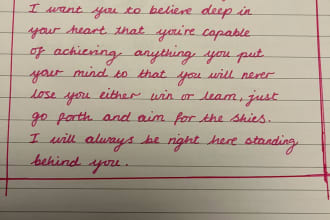 I want you to believe deep in
your heart that you're capable
of achieving anything you put
your mind to that you will never
lose you either win or learn, just
go forth and aim for the skies.
I will always be right here standing
behind you.